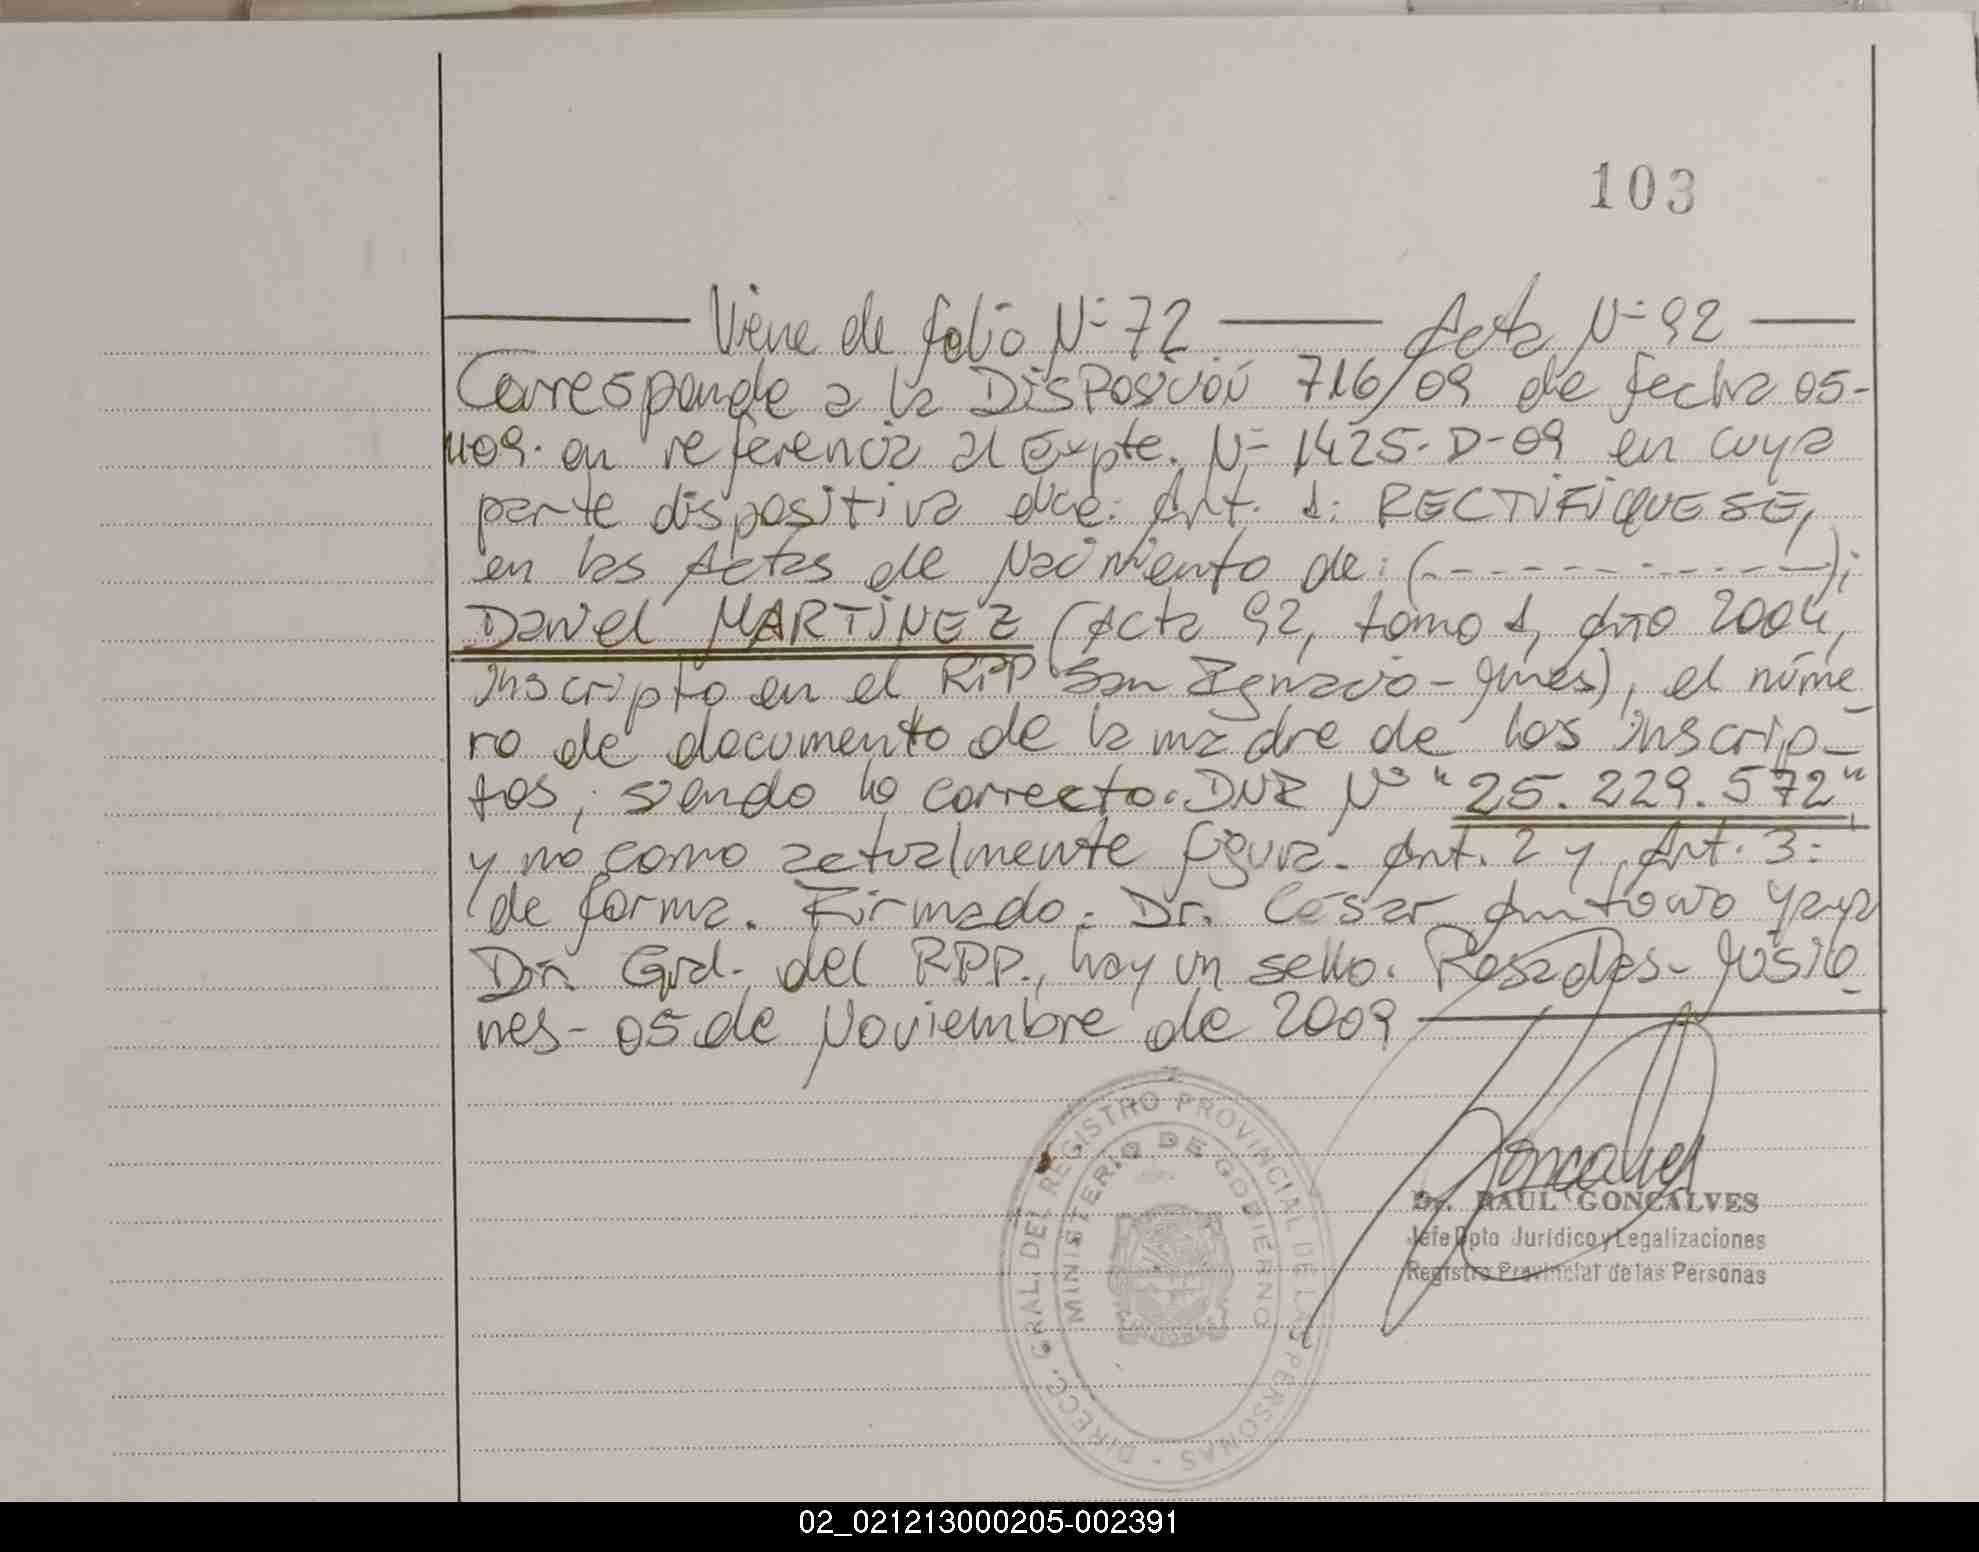 103
Viene de folio Nº 72 Acta Nº 92
Corresponde a la DisPosición 716/09 de fecha 05-
1109. en referencia al Expte. Nº 1425-D-09 en cuya
parte dispositiva dice: Art. 1: RECTIFIQUESE,
en las Actas de Nacimiento de: (- - - - - - - - - - - -);
Daniel MARTINEZ (Acta 92, tomo 1, Año 2004,
inscripto en el RPP San Ignacio - Mnes), el núme_
ro de documento de la madre de los inscrip_
tos, siendo lo correcto. DNI Nº "25.229.572"
y no como actualmente figura. Art. 2 y Art. 3:
de forma. Firmado. Dr. César Antonio Yaya
Dir. Gral. del RPP., hay un sello. Posadas - Misio_
nes - 05 de Noviembre de 2009
DIRECC. GRAL DEL REGISTRO PROVINCIAL DE LAS PERSONAS
MINISTERIO DE GOBIERNO
Dr. RAUL GONCALVES
Jefe Dpto Jurídico y Legalizaciones
Registro Provincial de las Personas
02_021213000205-002391